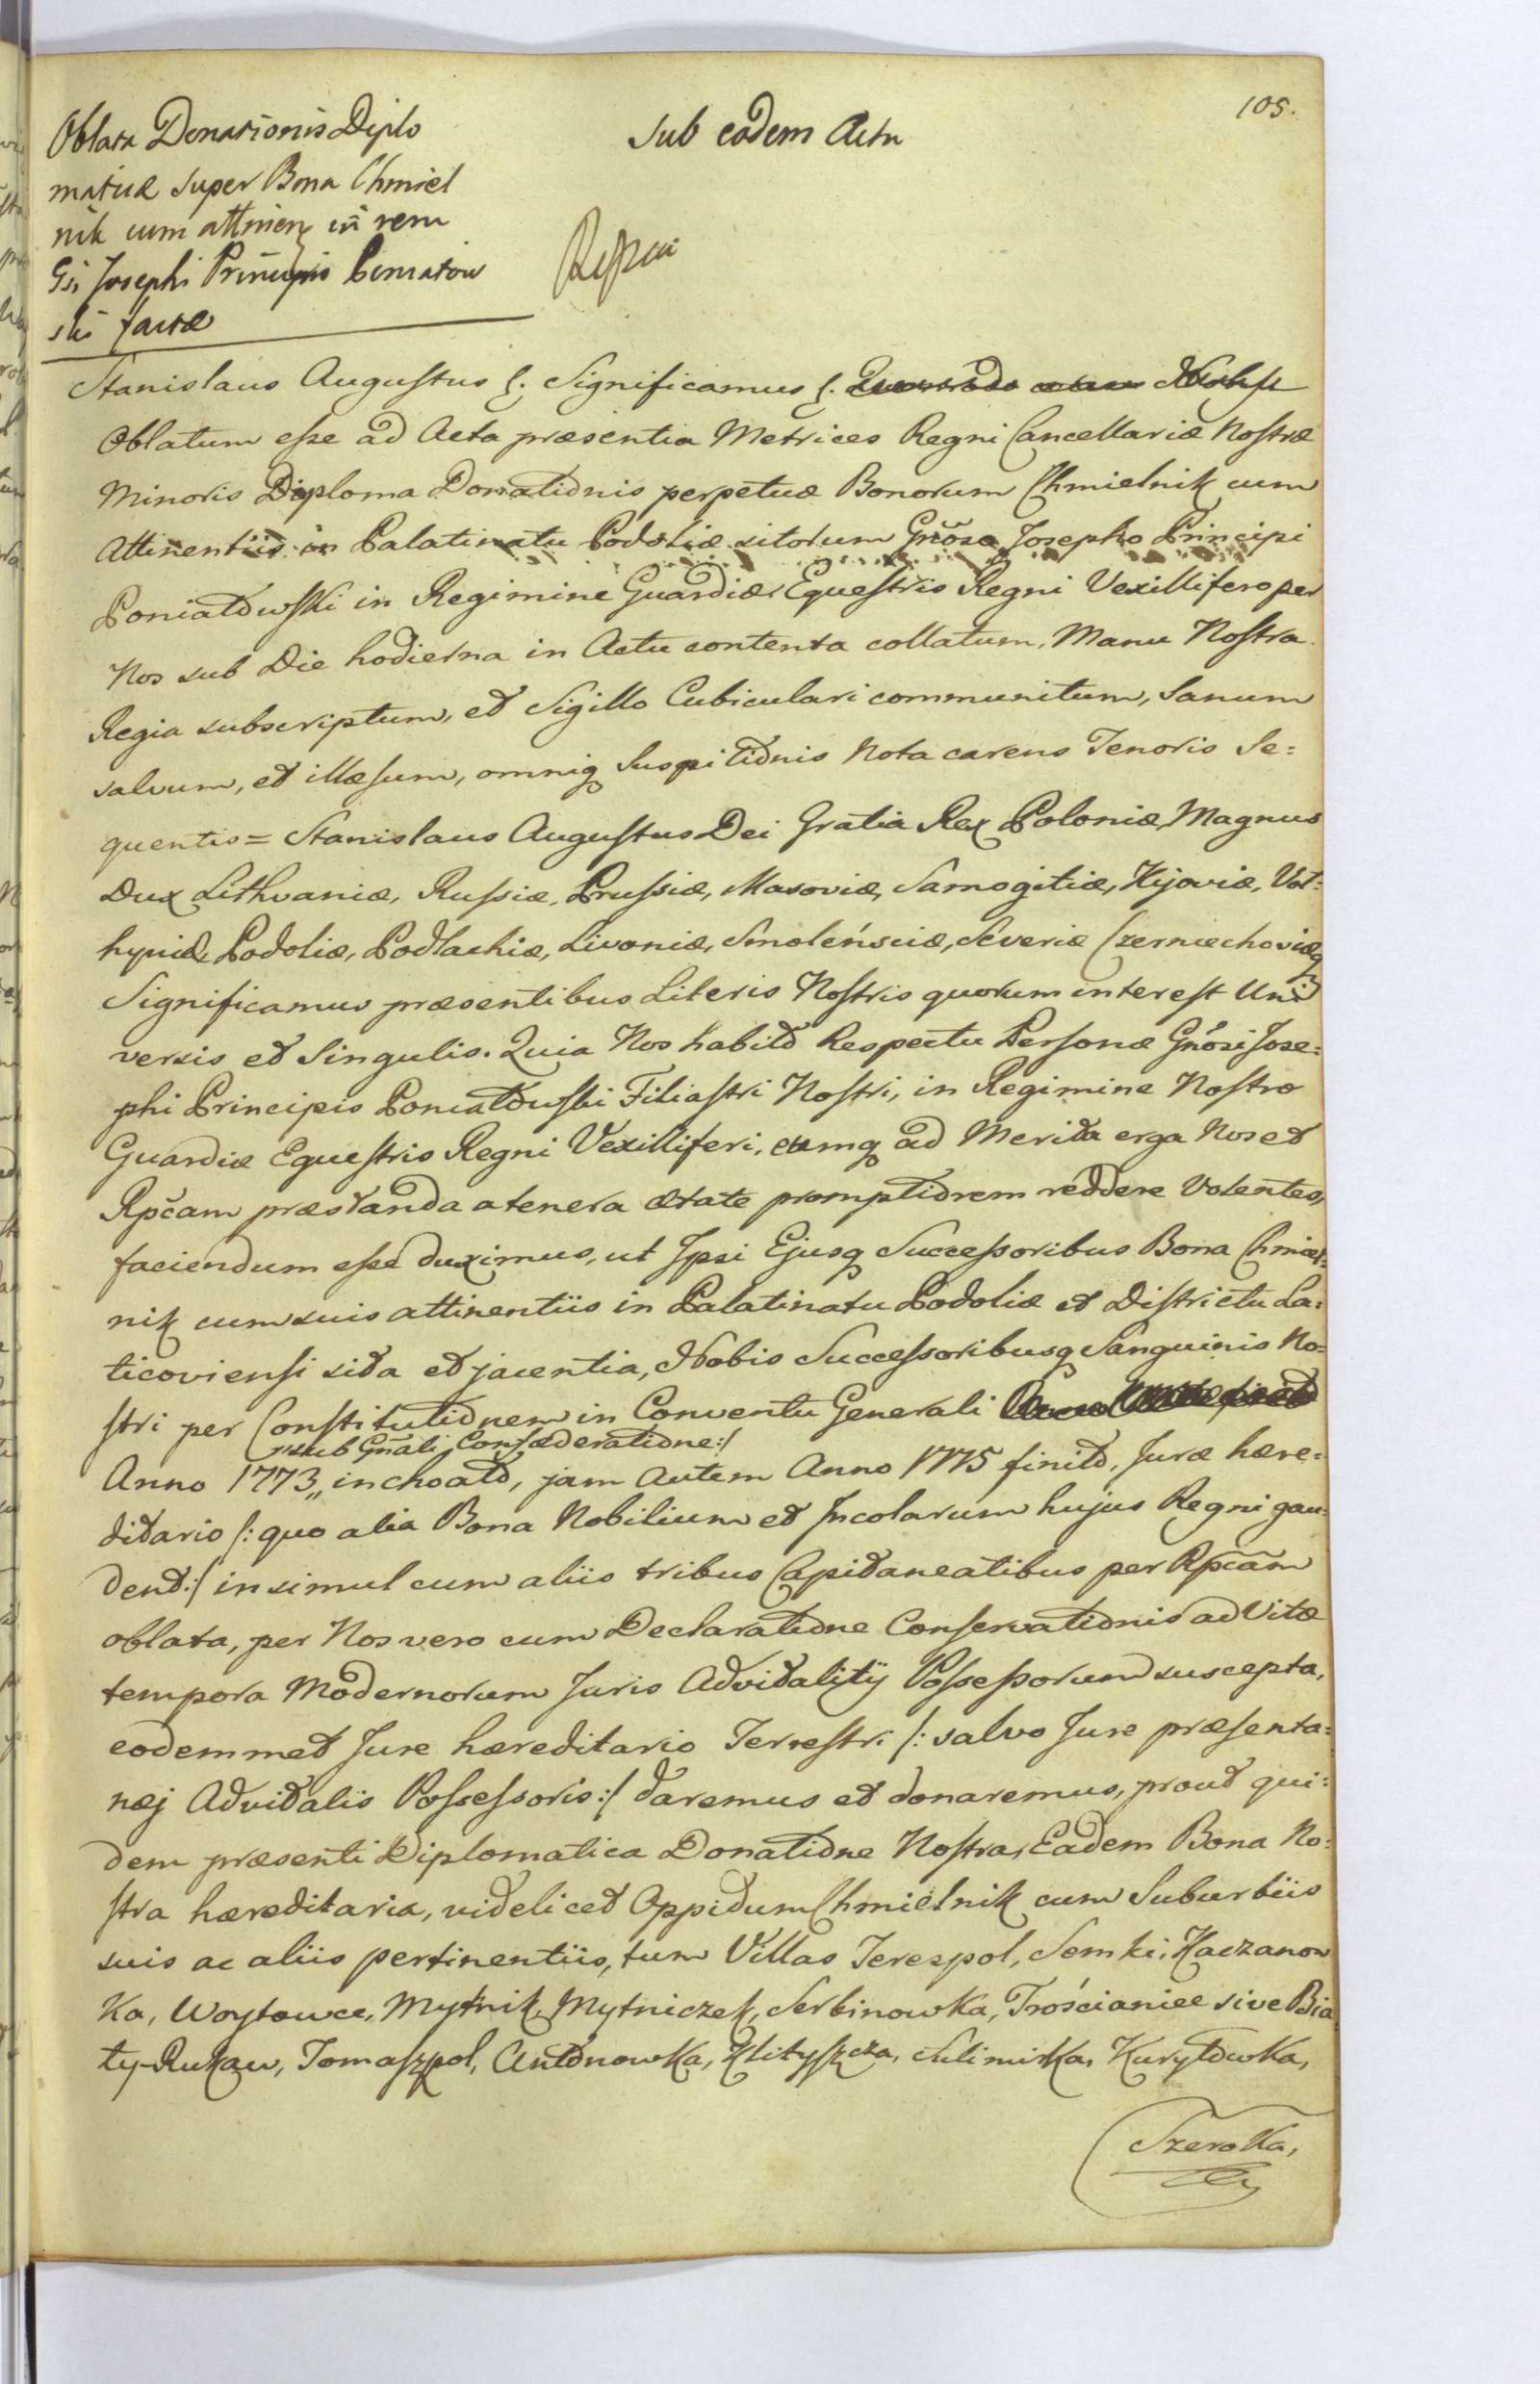 105.
Oblata Donationis Diplo
maticæ super Bona Chmiel
nik cum attinen in rem
Gsi Josephi Principis Poniatow
ski factæ
Sub eodem Actu
Stanislaus Augustus &. Significamus &.
Oblatum eſse ad Acta præsentia Metrices Regni Cancellariæ Nostræ
Minoris Diploma Donationis perpetuæ Bonorum Chmielnik cum
Attinentiis in Palatinatu Podoliæ sitorum Gñoso Josepho Principi
Poniatowski in Regimine Guardiæ Equestris Regni Vexillifero per
Nos sub Die hodierna in Actu contenta collatum, Manu Nostra
Regia subscriptum, et Sigillo Cubiculari communitum, Sanum
salvum, et illæsum, omniq Suspitionis Nota carens Tenoris Se=
quentis = Stanislaus Augustus Dei Gratia Rex Poloniæ, Magnus
Dux Lithvaniæ, Rusſiæ, Pruſsiæ, Masoviæ, Samogitiæ, Kijoviæ, Vol=
hyniæ, Podoliæ, Podlachiæ, Livoniæ, Smolénsciæ, Severiæ Czerniechoviæq
Significamus præsentibus Literis Nostris quorum interest Uni
versis et Singulis. Quia Nos habito Respectu Personæ Gñosi Jose=
phi Principis Poniatowski Filiastri Nostri, in Regimine Nostro
Guardiæ Equestris Regni Vexilliferi, eumq ad Merita erga Nos et
Rpcam præstanda a tenera ætate promptiorem reddere Volentes,
faciendum eſse duximus, ut Ipsi Ejusq Succeſsoribus Bona Chmiel=
nik cum suis attinentiis in Palatinatu Podoliæ et Districtu La=
ticoviensi sita et jacentia, Nobis Succeſsoribusq Sanguinis No=
stri per Constitutionem in Conventu Generali
/:sub Gñali Confœderatione:/
Anno 1773 „ inchoato, jam Autem Anno 1775 finito, Juræ hære=
ditario /: quo alia Bona Nobilium et Incolarum hujus Regni gau=
dent :/ insimul cum aliis tribus Capitaneatibus per Rpcam
oblata, per Nos vero cum Declaratione Conservationis ad Vitæ
tempora Modernorum Juris Advitalitÿ Poſseſsorum suscepta,
eodemmet Jure hæreditario Terrestri /: salvo Jure præsenta=
nej Advitalis Poſseſsoris :/ daremus et donaremus, prout qui=
dem præsenti Diplomatica Donatione Nostra, Eadem Bona No=
stra hæreditaria, videlicet Oppidum Chmielnik cum Suburbiis
suis ac aliis pertinentiis, tum Villas Terespol, Semki, Kaczanow
ka, Woytowce, Mytnik, Mytniczek, Serbinowka, Trościaniec sive Bia
ły-Rukaw, Tomaszpol, Antonowka, Klityszcza, Sulimirka, Kuryłowka,
Szeroka,